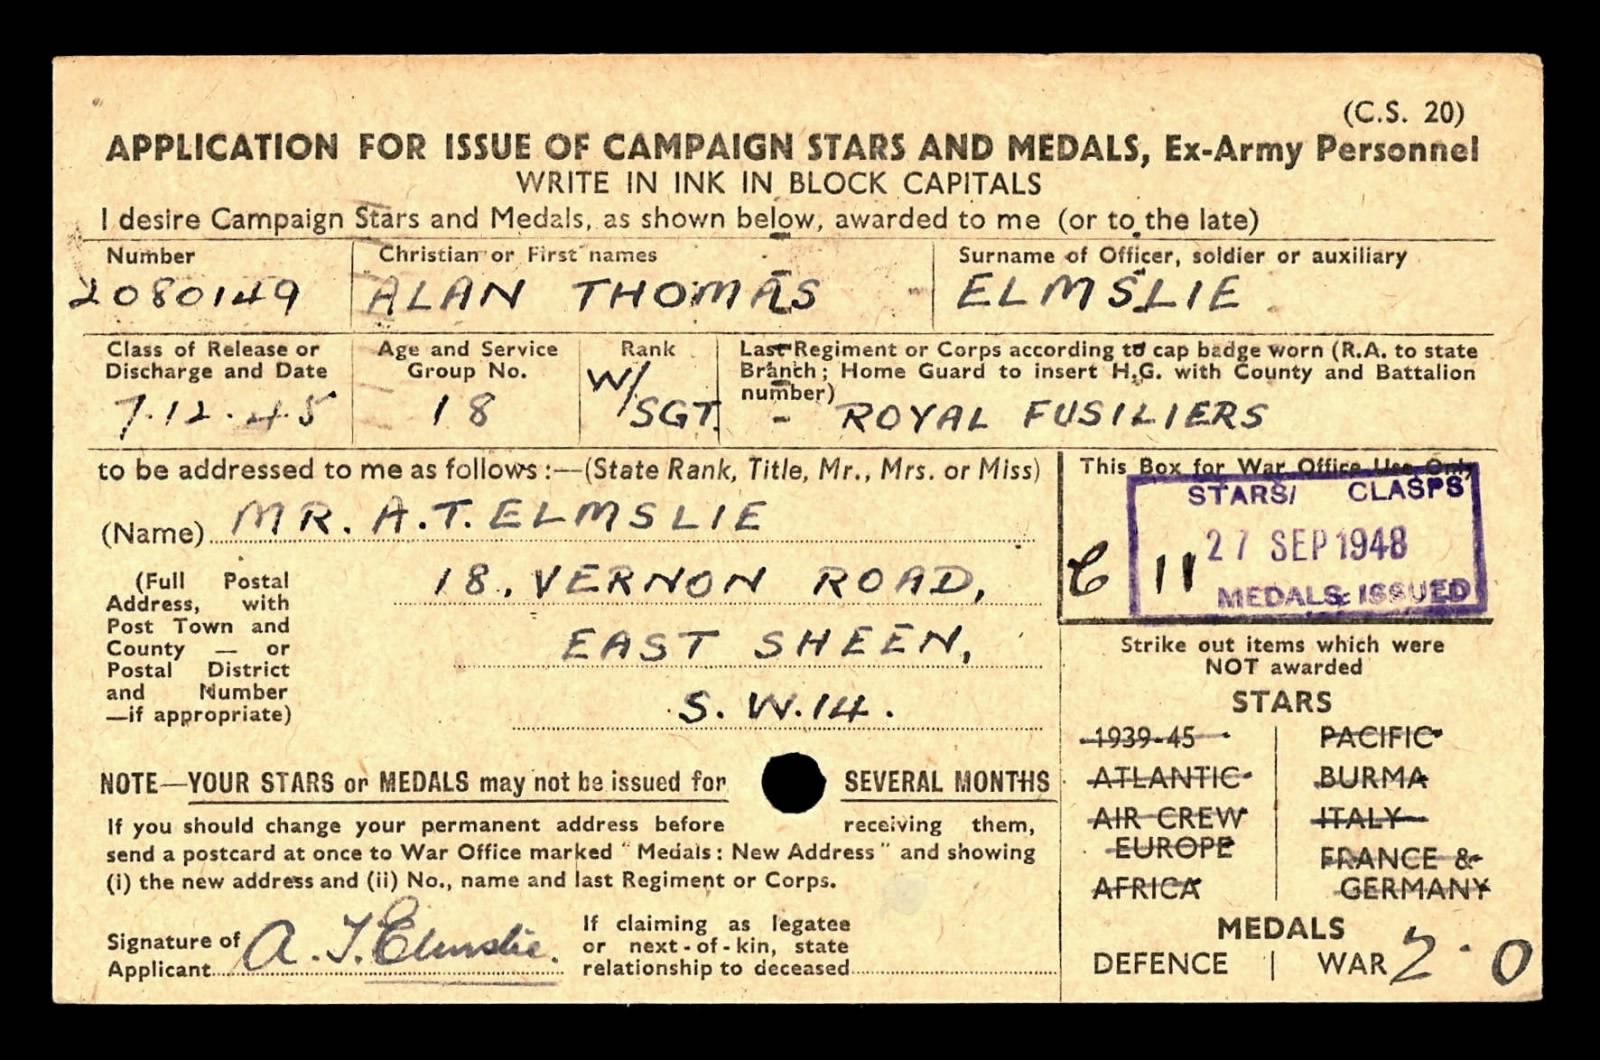 (C.S. 20)
APPLICATION FOR ISSUE OF CAMPAIGN STARS AND MEDALS, Ex-Army Personnel
WRITE IN INK IN BLOCK CAPITALS
I desire Campaign Stars and Medals, as shown below, awarded to me (or to the late)
Number Christian or First names Surname of Officer, soldier or auxiliary
2080149 ALAN THOMAS ELMSLIE
Class of Release or Discharge and Date
7.12.45
Age and Service Group No.
18
Rank
W/SGT.
Last Regiment or Corps according to cap badge worn (R.A. to state
Branch; Home Guard to insert H.G. with County and Battalion
number)
- ROYAL FUSILIERS
to be addressed to me as follows:—(State Rank, Title, Mr., Mrs. or Miss)
(Name) MR. A.T. ELMSLIE
(Full Postal
Address, with
Post Town and
County — or
Postal District
and Number
—if appropriate)
18, VERNON ROAD,
EAST SHEEN,
S.W.14.
This Box for War Office Use Only
STARS/ CLASPS
27 SEP 1948
C 11
MEDALS: ISSUED
Strike out items which were
NOT awarded
STARS
1939-45 PACIFIC
ATLANTIC BURMA
AIR CREW EUROPE ITALY
AFRICA FRANCE & GERMANY
MEDALS
DEFENCE | WAR 2 · 0
NOTE—YOUR STARS or MEDALS may not be issued for SEVERAL MONTHS
If you should change your permanent address before receiving them,
send a postcard at once to War Office marked "Medals: New Address" and showing
(i) the new address and (ii) No., name and last Regiment or Corps.
Signature of
Applicant A. T. Elmslie.
If claiming as legatee
or next-of-kin, state
relationship to deceased